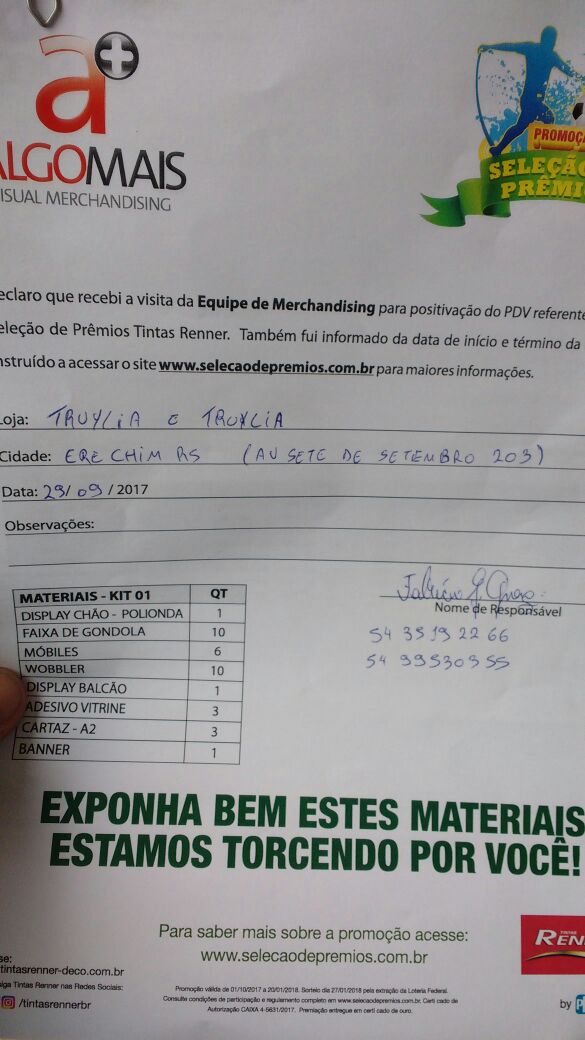 a+
ALGOMAIS
VISUAL MERCHANDISING
PROMOÇÃ
SELEÇÃO
PRÊMI
eclaro que recebi a visita da Equipe de Merchandising para positivação do PDV referente
eleção de Prêmios Tintas Renner. Também fui informado da data de início e término da
nstruído a acessar o site www.selecaodepremios.com.br para maiores informações.
Loja: TRUYLIA E TRUYLIA
Cidade: ERECHIM RS (AV SETE DE SETEMBRO 203)
Data: 29/09/2017
Observações:
MATERIAIS - KIT 01 QT
DISPLAY CHÃO - POLIONDA 1
FAIXA DE GONDOLA 10
MÓBILES 6
WOBBLER 10
DISPLAY BALCÃO 1
ADESIVO VITRINE 3
CARTAZ - A2 3
BANNER 1
Nome de Responsável
54 35192266
54 99530955
EXPONHA BEM ESTES MATERIAIS
ESTAMOS TORCENDO POR VOCÊ!
Para saber mais sobre a promoção acesse:
www.selecaodepremios.com.br
se:
tintasrenner-deco.com.br
siga Tintas Renner nas Redes Sociais:
/tintasrennerbr
Promoção válida de 01/10/2017 a 20/01/2018. Sorteio dia 27/01/2018 pela extração da Loteria Federal.
Consulte condições de participação e regulamento completo em www.selecaodepremios.com.br. Certi cado de
Autorização CAIXA 4-5631/2017. Premiação entregue em certi cado de ouro.
TINTAS
REN
by